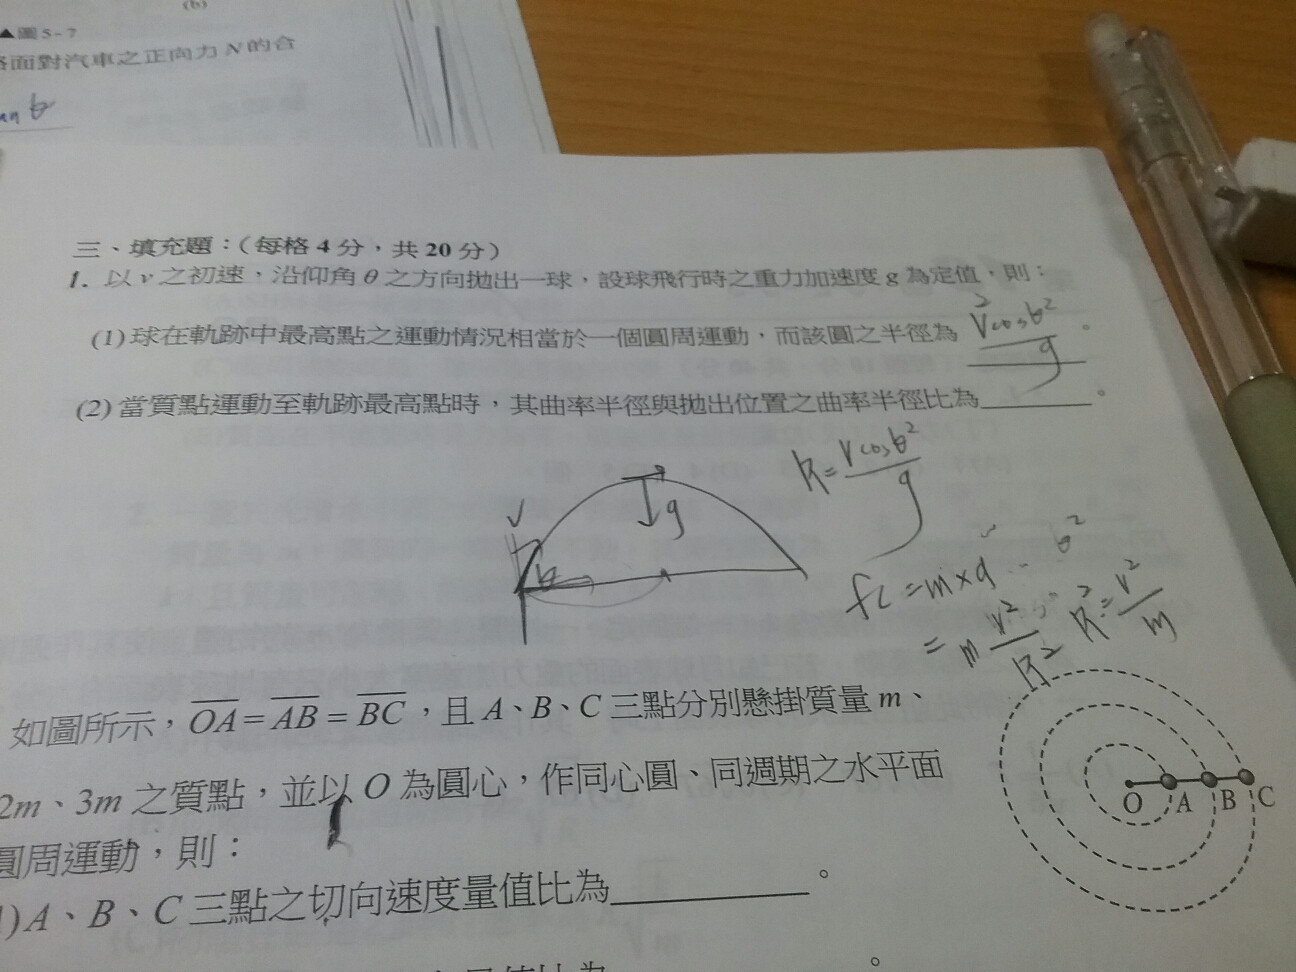 (b)
▲圖5-7
面對汽車之正向力N的合
θ
三、填充題：(每格4分，共20分)
1. 以v之初速，沿仰角θ之方向拋出一球，設球飛行時之重力加速度g為定值，則：
(1)球在軌跡中最高點之運動情況相當於一個圓周運動，而該圓之半徑為 V²cosθ²/g 。
(2)當質點運動至軌跡最高點時，其曲率半徑與拋出位置之曲率半徑比為________。
R=Vcosθ²/g
V
g
θ
fc=m×a
θ²
=m V²/R
R²=V²/m
如圖所示，OA=AB=BC，且A、B、C三點分別懸掛質量m、
2m、3m之質點，並以O為圓心，作同心圓、同週期之水平面
圓周運動，則：
O A B C
1)A、B、C三點之切向速度量值比為________。
量值比為 。